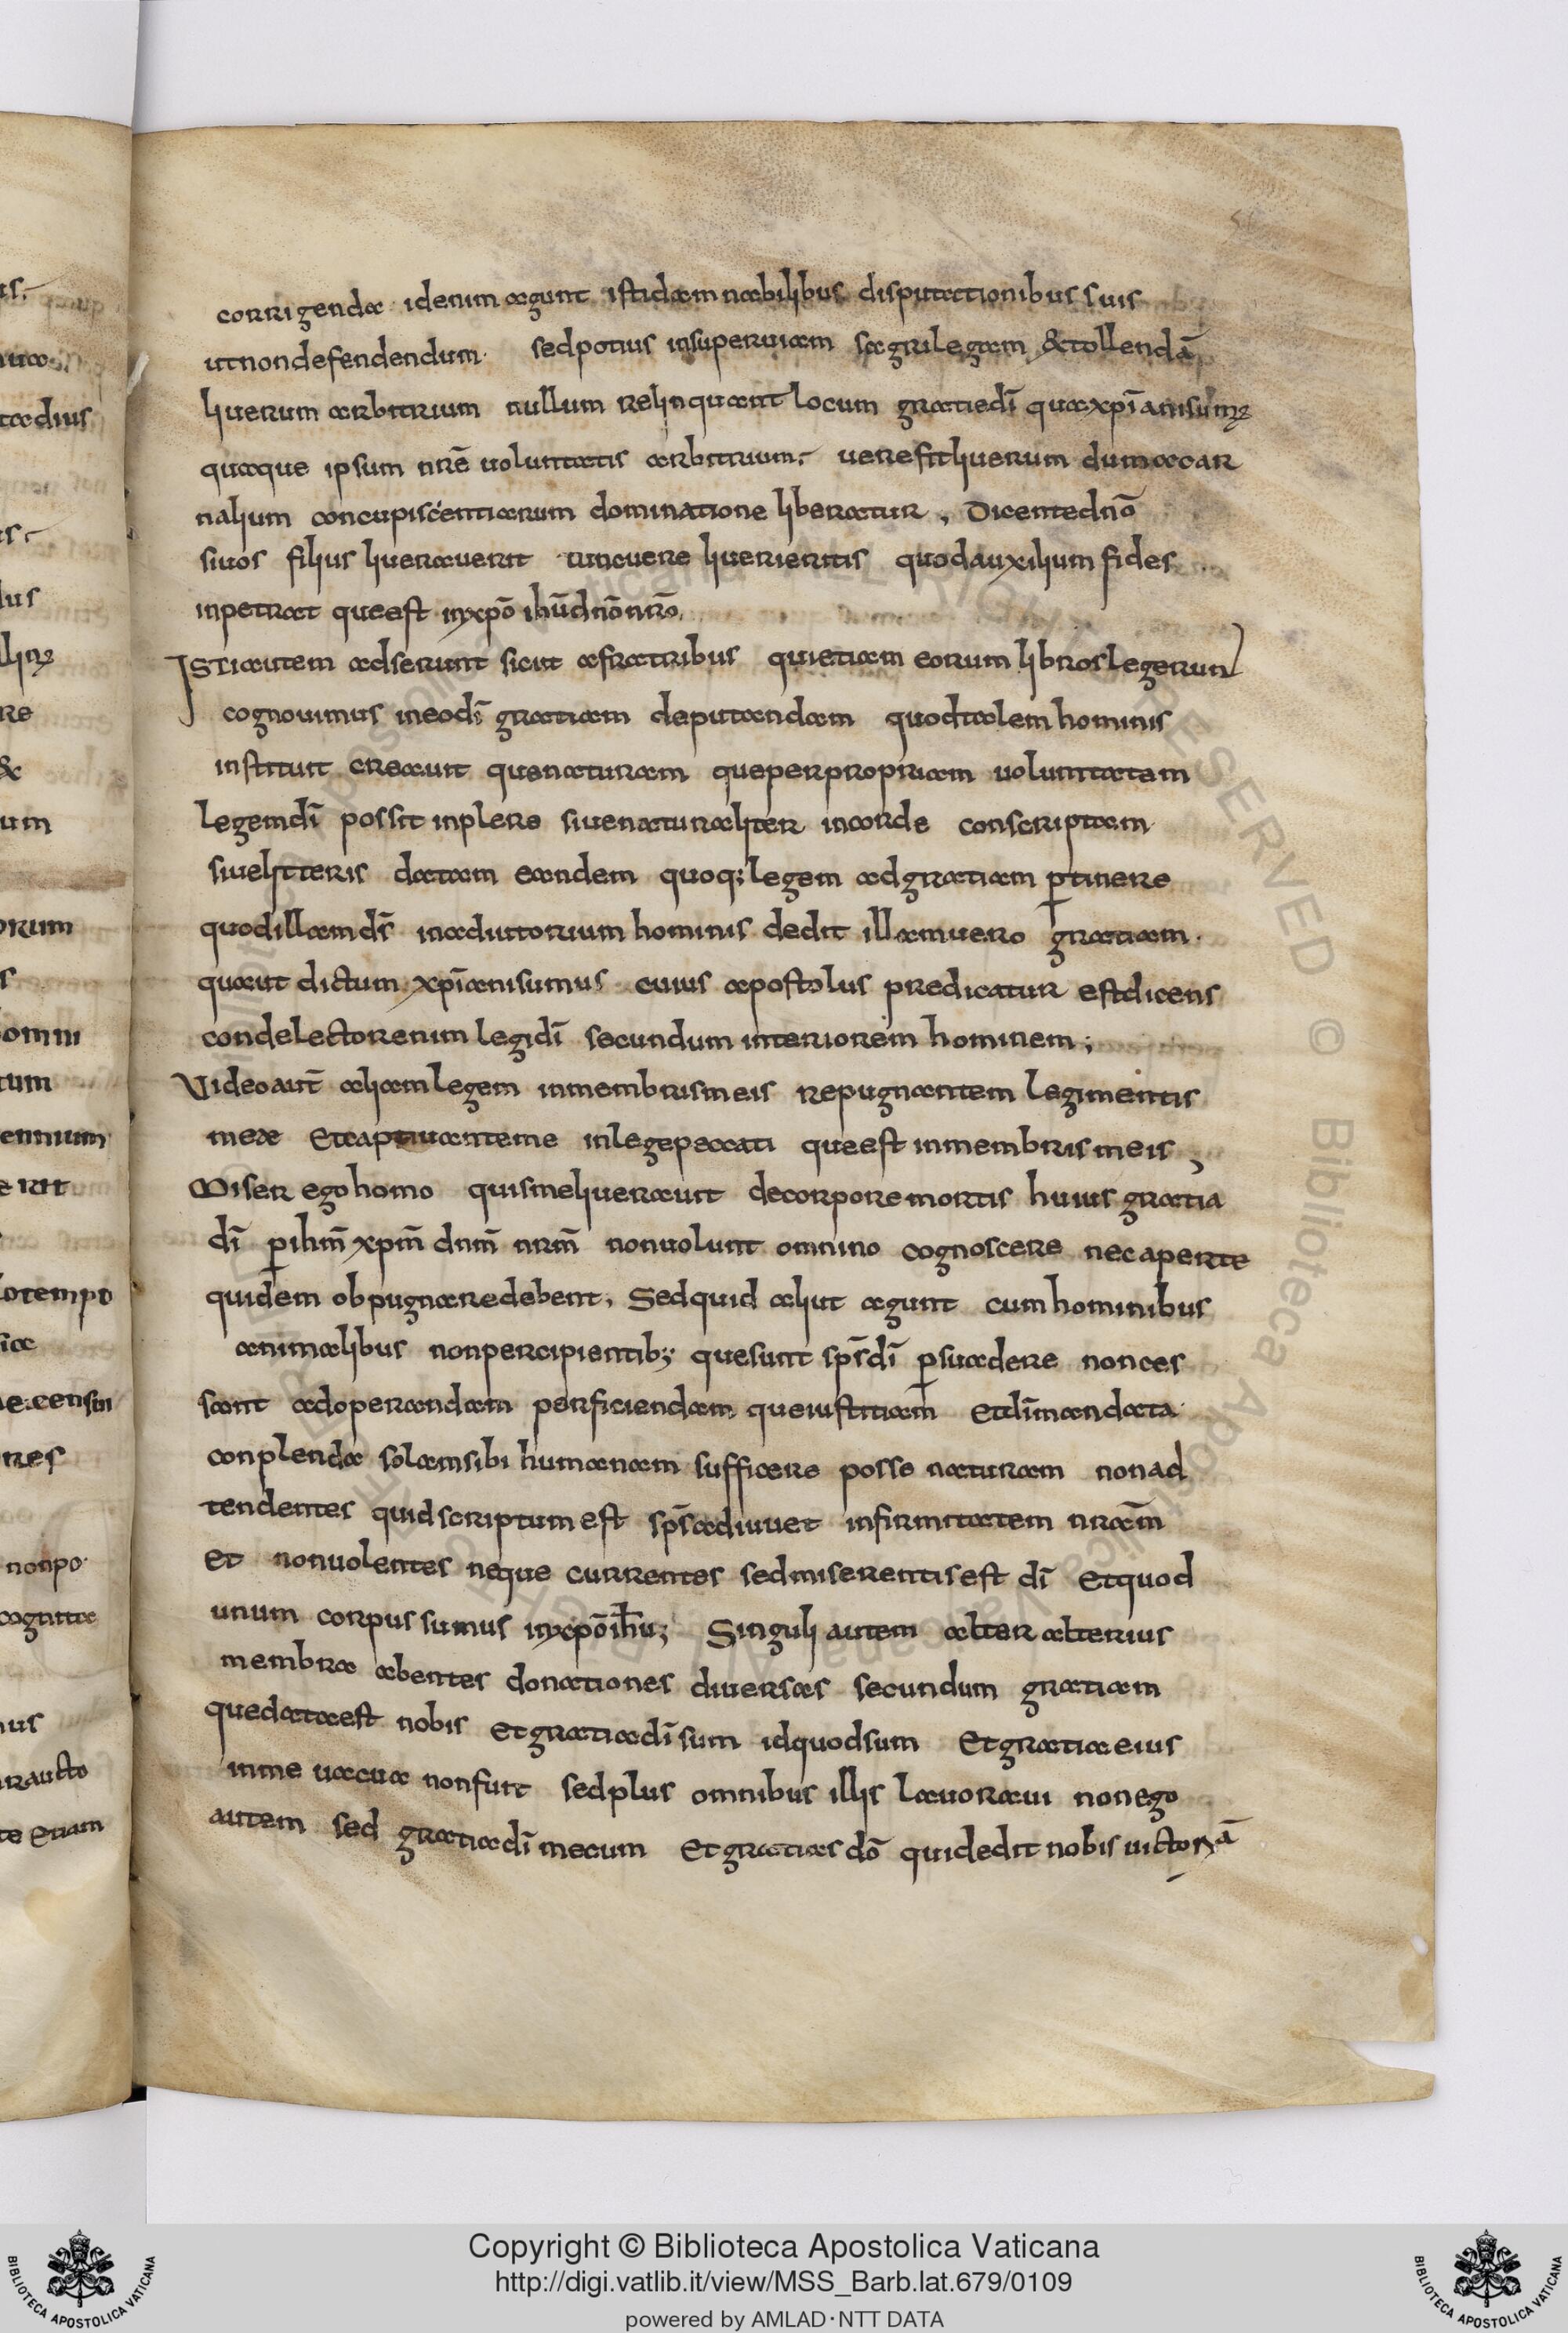 corrigenda idenim agunt istidamnabilibus disputationibus suis
utnondefendendum· sedpotius insuperuiam sagrilegam &tollendā
liuerum arbitrium nullum relinquant locum gratiedī quaxpīanisumꝰ
quaque ipsum nrē uoluntatis arbitrium· uerefitliuerum dumaccar
nalium concupiscentiarum dominatione liberatur, Dicentednō
siuos filius liuerauerit tuncuere liuerieritis quodauxilium fides
inpetrat queest inxpō ihūdnōnrō
Istiautem adserunt sicut afratribus quietiam eorum libroslegerunt
cognouimus ineodī gratiam deputandam quodtalem hominis
instituit creauit quenaturam queperpropriam uoluntatem
legemdī possit inplere siuenaturaliter incorde conscriptam
siuelitteris datam eandem quoq; legem adgratiam ꝑtinere
quodillamds̄ inadiutorium hominis dedit illamuero gratiam·
quaut dictum xpīanisumus cuius apostolus predicatur estdicens
condelectorenim legidī secundum interiorem hominem;
Videoaut̄ aliamlegem inmembrismeis repugnantem legimentis
meae etcaptiuanteme inlegepeccati queest inmembris meis,
Miser egohomo quismeliuerauit decorpore mortis huius gratia
dī ꝑihm̄ xpm̄ dnm̄ nrm̄ nonuolunt omnino cognoscere necaperte
quidem obpugnaredebent, Sedquid aliut agunt cumhominibus
animalibus nonpercipientib; quesunt sps̄dī ꝑsuadere nonces
sant adoperandam perficiendam queiustitiam etdīmandata
conplenda solamsibi humanam sufficere posse naturam nonad
tendentes quidscriptumest sps̄adiuuet infirmitatem nram̄
et nonuolentes neque currentes sedmiserentisest dī etquod
unum corpus sumus inxpōihū; Singuli autem alter alterius
membra abentes donationes diuersas secundum gratiam
quedataest nobis etgratiadī sum idquodsum Etgratiaeius
inme uacua nonfuit sedplus omnibus illis lauoraui nonego
autem sed gratiadī mecum Etgratias dō quidedit nobis uictoriā
Copyright © Biblioteca Apostolica Vaticana
http://digi.vatlib.it/view/MSS_Barb.lat.679/0109
powered by AMLAD·NTT DATA
BIBLIOTECA APOSTOLICA VATICANA
BIBLIOTECA APOSTOLICA VATICANA